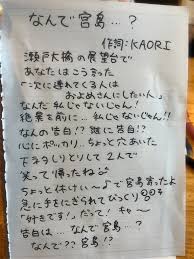 なんで宮島…?
作詞:KAORI
瀬戸大橋の展望台で
あなたはこう言った
「次に連れてくる人は
およめさんにしたい」
なんだ 私じゃないじゃん!
絶景を前に…私じゃないじゃん!!
なんの告白!? 誰に告白!?
心にポッカリ、ちょっと穴あいた
下ネタしりとりして 2人で
笑って帰ったね
ちょっと休けい〜♪で宮島寄ったよ
急に手をにぎられてびっくり
「好きです!」だって! キャ〜
告白は…なんで 宮島…?
なんで?? 宮島!?